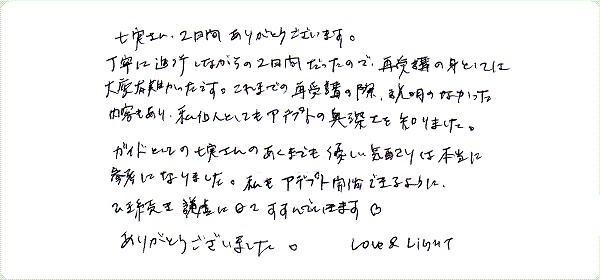 七実さん、2日間ありがとうございます。
丁寧に進行しながらの2日間だったので、再受講の身としては
大変有難かったです。これまでの再受講の際、説明のなかった
内容もあり、私個人としてもアデプトの奥深さを知りました。
ガイドとしての七実さんのあくまでも優しい気配りは本当に
参考になりました。私もアデプト開催できるように、
謙虚に すすんでいきます♡
ありがとうございました。 Love & Light